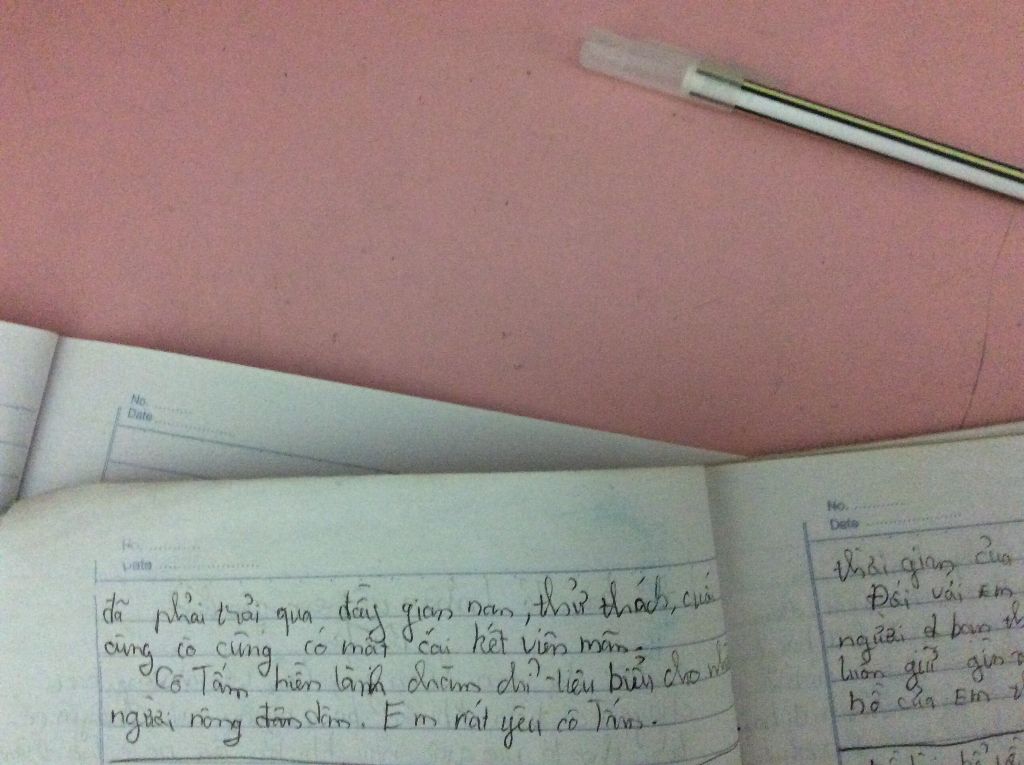 No.
Date
No.
Date
đã phải trải qua đầy gian nan, thử thách, cuối
cùng cô cũng có một cái kết viên mãn.
Cô Tấm hiền lành chăm chỉ - tiêu biểu cho
người nông dân. Em rất yêu cô Tấm.
No.
Date
thời gian của
Đối với Em
người bạn
luôn giữ gìn
bố của Em